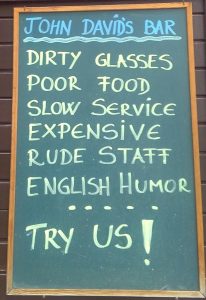 JOHN DAVID'S BAR
DIRTY GLASSES
POOR FOOD
SLOW SERVICE
EXPENSIVE
RUDE STAFF
ENGLISH HUMOR
.....
TRY US!